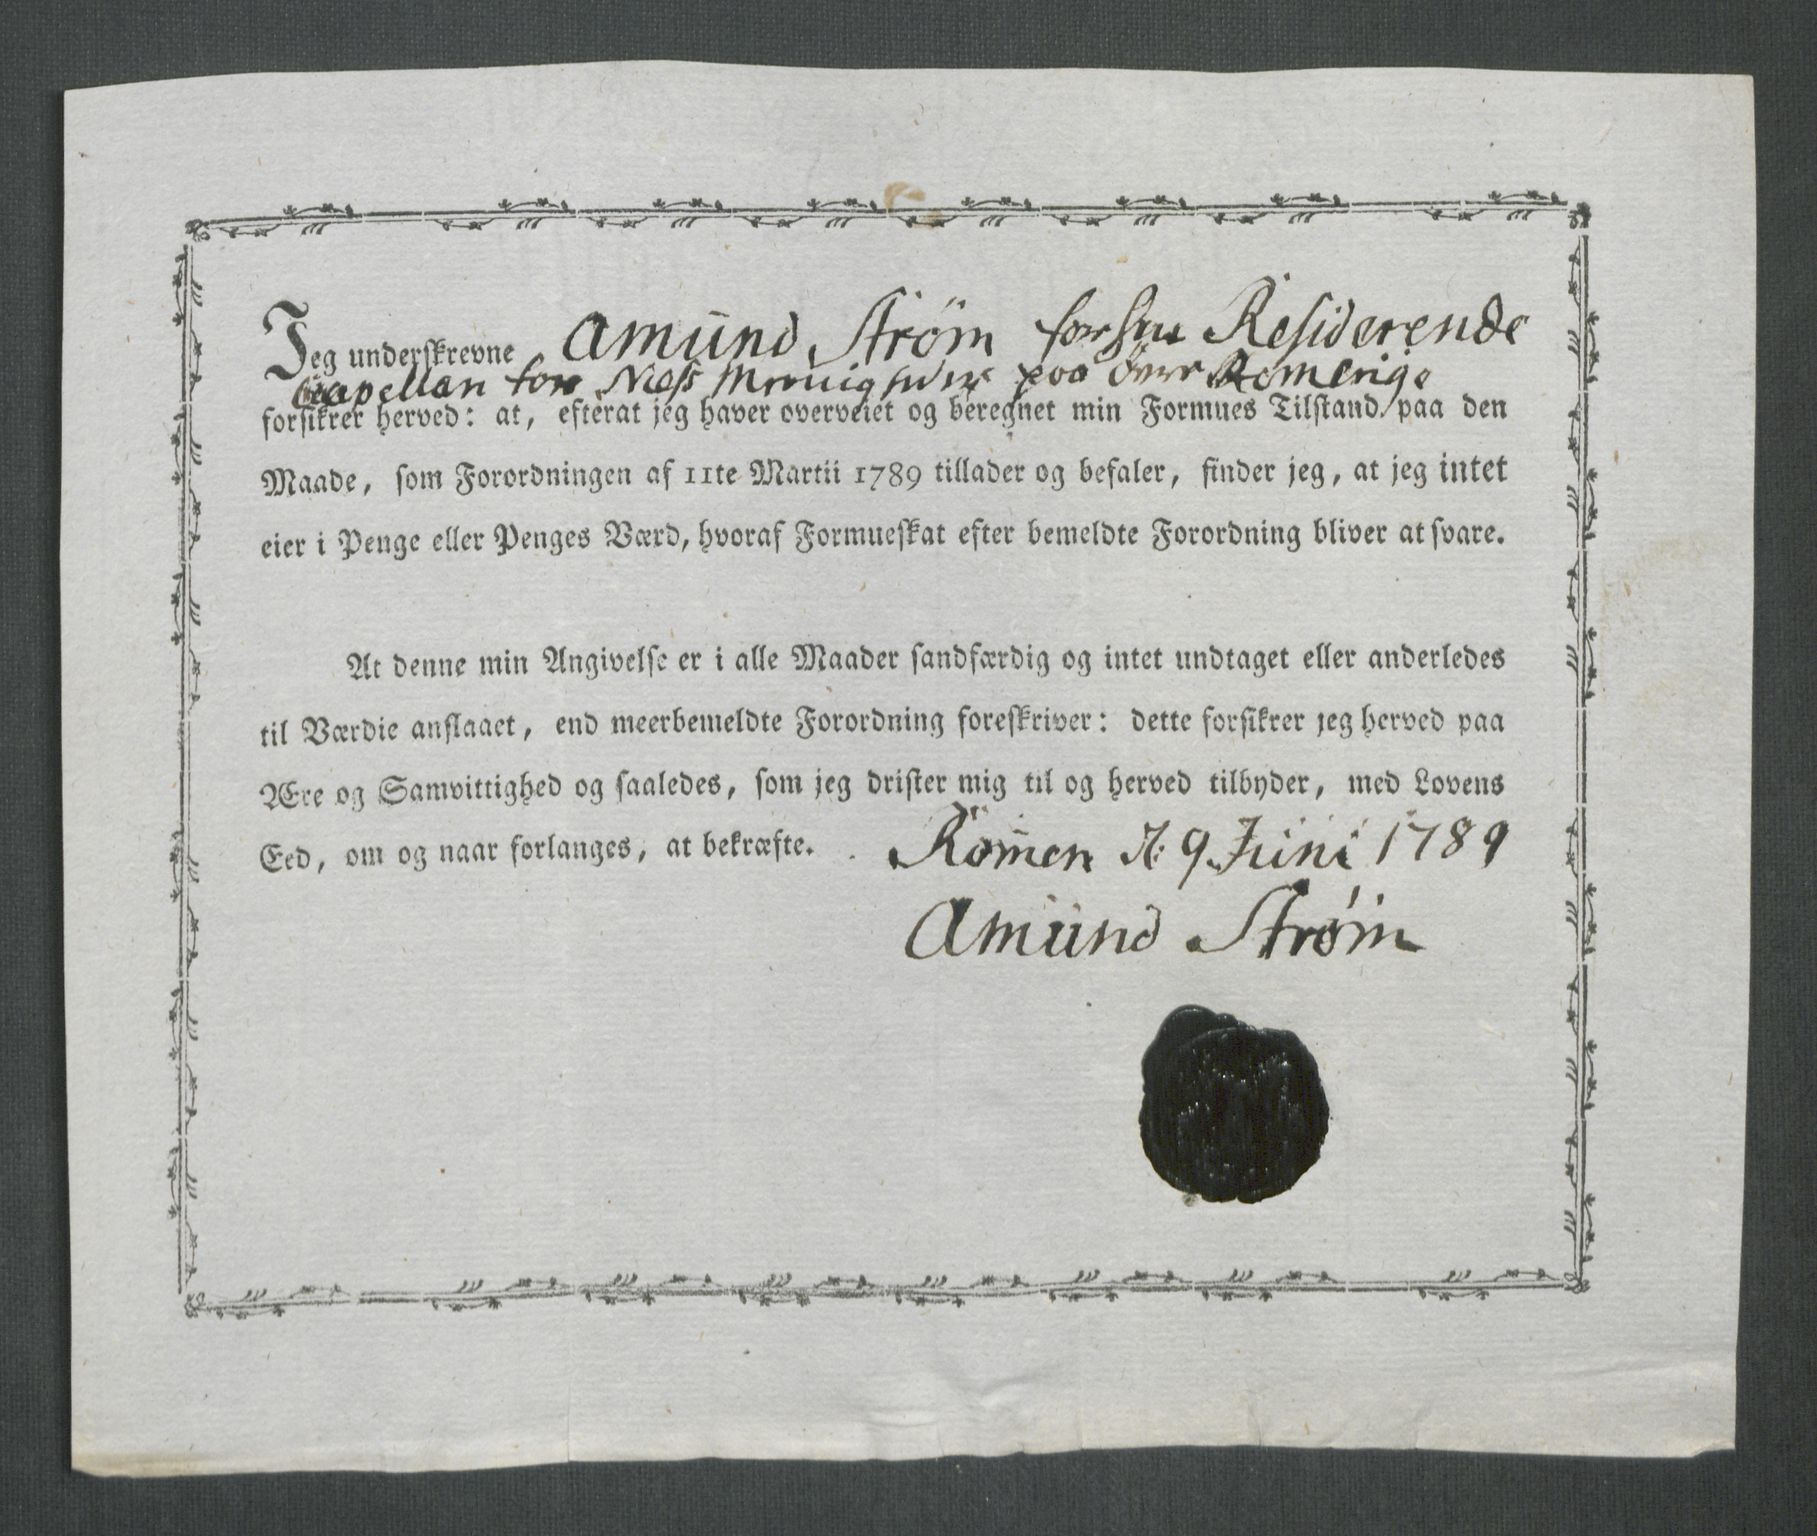 Jeg underskrevne Amund Strøm Residerende
Capellan for Næss Menigheder paa Øvre Romerige
forsikrer herved: at, efterat jeg haver overveiet og beregnet min Formues Tilstand paa den
Maade, som Forordningen af 11te Martii 1789 tillader og befaler, finder jeg, at jeg intet
eier i Penge eller Penges Værd, hvoraf Formueskat efter bemeldte Forordning bliver at svare.
At denne min Angivelse er i alle Maader sandfærdig og intet undtaget eller anderledes
til Værdie anslaaet, end meerbemeldte Forordning foreskriver: dette forsikrer jeg herved paa
Ære og Samvittighed og saaledes, som jeg drister mig til og herved tilbyder, med Lovens
Eed, om og naar forlanges, at bekræfte. Römen d: 9 Juni 1789
Amund Strøm